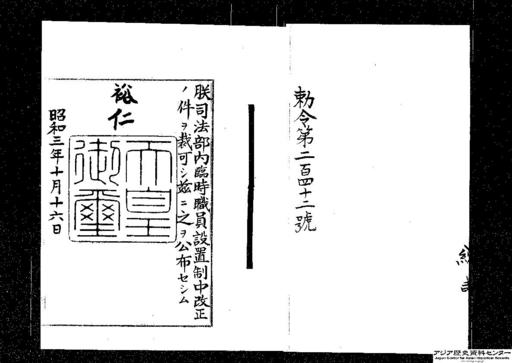 勅令第二百四十二號
朕司法部內臨時職員設置制中改正
ノ件ヲ裁可シ茲ニ之ヲ公布セシム
裕仁
天皇
御璽
昭和三年十月十六日
アジア歴史資料センター
Japan Center for Asian Historical Records